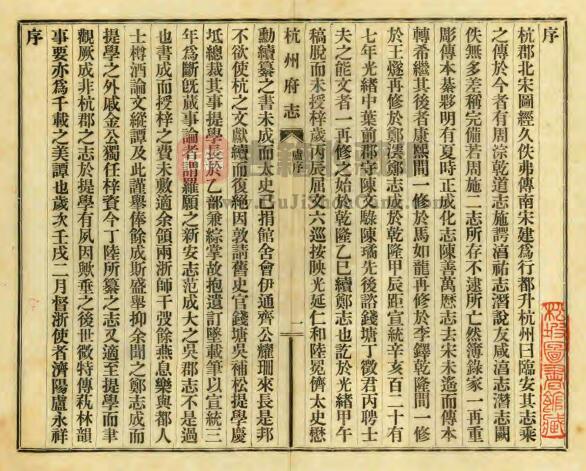 序
杭郡北宋圖經久佚弗傳南宋建爲行都升杭州曰臨安其志乘
之傳於今者有周淙乾道志施諤淳祐志潛說友咸淳志潛志闕
佚無多差稱完備若周施二志所存不逮所亡然簿錄家一再重
彫傳本綦夥明有夏時正成化志陳善萬歷志去宋未遙而傳本
轉希繼其後者康熙間一修於馬如龍再修於李鐸乾隆間一修
於王燧再修於鄭澐鄭志成於乾隆甲辰距宣統辛亥百二十有
七年光緒中葉前郡守陳文騄陳璚先後諮錢塘丁徵君丙聘士
夫之能文者一再修之始於乾隆乙巳續鄭志也訖於光緒甲午
稿脫而未授梓歲丙辰屈文六巡按映光延仁和陸冕儕太史懋
杭州府志 盧序 一
勳續纂之書未成而太史又捐館舍會伊通齊公耀珊來長是邦
不欲使杭之文獻續而復絕因敦請舊史官錢塘吳補松提學慶
坻總裁其事提學長於乙部兼綜掌故抱遺訂墜載筆以宣統三
年爲斷旣蕆事論者謂羅願之新安志范成大之吳郡志不是過
也書成而授梓之費未敷適余領兩浙師干弢餘燕息樂與都人
士樽酒論文縱譚及此謹舉俸餘成斯盛舉抑余聞之鄭志成而
提學之外戚金公獨任梓資今丁陸所纂之志又適至提學而聿
觀厥成非杭郡之志於提學有夙因歟垂之後世微特傳萟林韻
事要亦爲千載之美譚也歲次壬戌二月督浙使者濟陽盧永祥
序
杭州圖書館藏